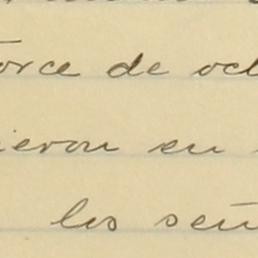 orce de oc
ieron en
los señ